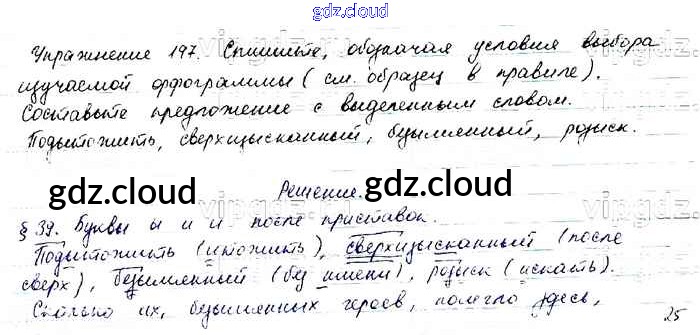 gdz.cloud
Упражнение 197. Спишите, обозначая условия выбора
изучаемой орфограммы (см. образец в правиле).
Составьте предложение с выделенным словом.
Подытожить, сверхизысканный, безымянный, розыск.
gdz.cloud
Решение.
gdz.cloud
§ 39. Буквы ы и и после приставок.
Подытожить (итожить), сверхизысканный (после
сверх), безымянный (без имени), розыск (искать).
Сколько их, безымянных героев, полегло здесь,
25